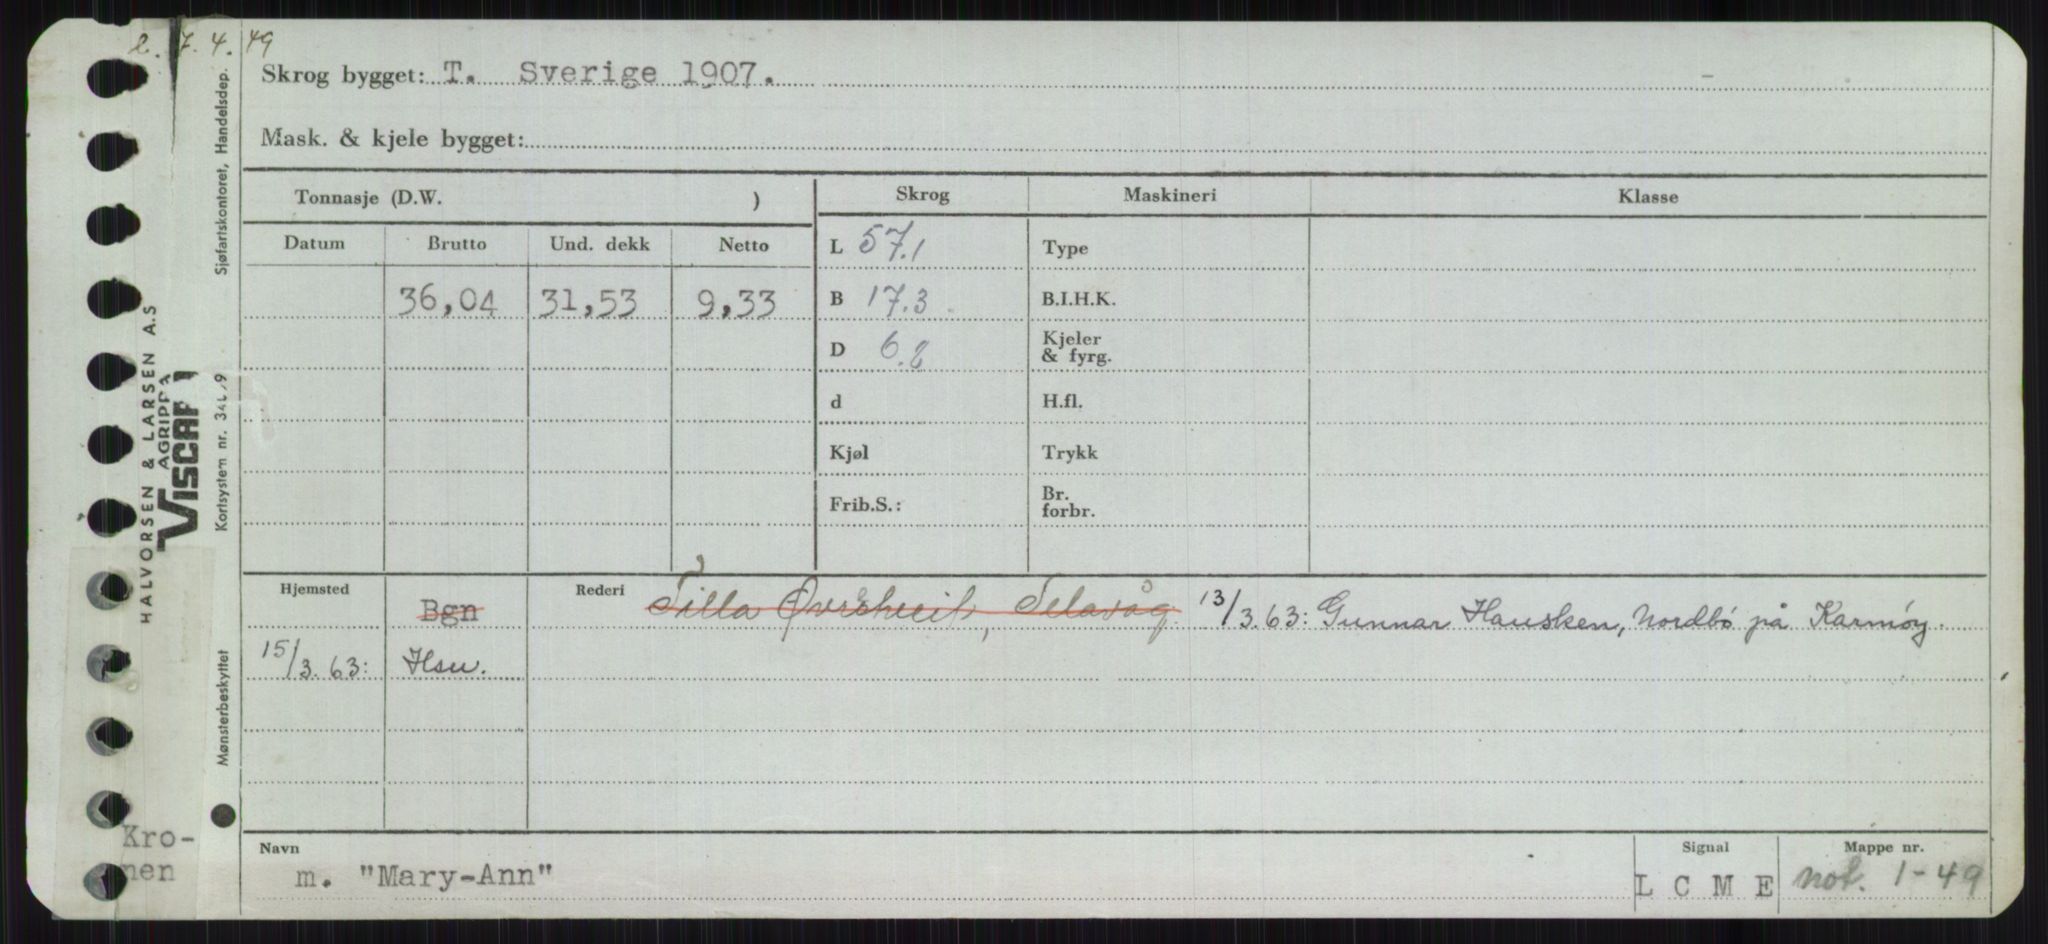 2. 7. 4. 49
Skrog bygget: T. Sverige 1907.
Mask. & kjele bygget:
Tonnasje (D.W. )
Skrog
Maskineri
Klasse
Datum
Brutto
Und. dekk
Netto
36,04
31,53
9,33
L 57.1
B 17.3
D 6.2
d
Kjøl
Frib.S.:
Type
B.I.H.K.
Kjeler
& fyrg.
H.fl.
Trykk
Br.
forbr.
Hjemsted
Bgn
Rederi
13/3.63: Gunnar Hausken, Nordbö på Karmøy.
15/3.63: Hsu.
Navn
m. "Mary-Ann"
Signal
L C M E
Mappe nr.
not. 1-49
Kro-
nen
HALVORSEN & LARSEN A.S
AGRIPPA
Kortsystem nr.
Sjøfartskontoret, Handelsdep.
Mønsterbeskyttet